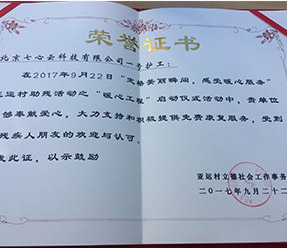 荣誉证书
北京七心云科技有限公司 护工：
在2017年9月22日“定格美丽瞬间，感受暖心服务”
亚运村助残活动之“暖心工程”启动仪式活动中，贵单位
奉献爱心，大力支持和积极提供免费康复服务，受到
残疾人朋友的欢迎与认可。
发此证，以示鼓励
亚运村立德社会工作事务
二〇一七年九月二十二